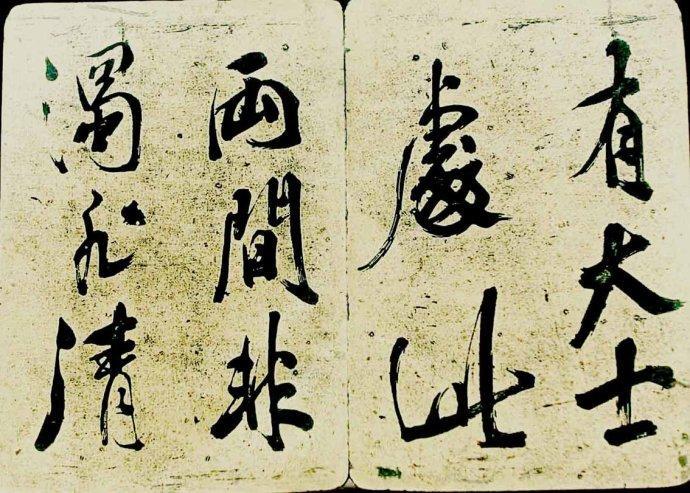 有大士
處此
兩間非
濁非清